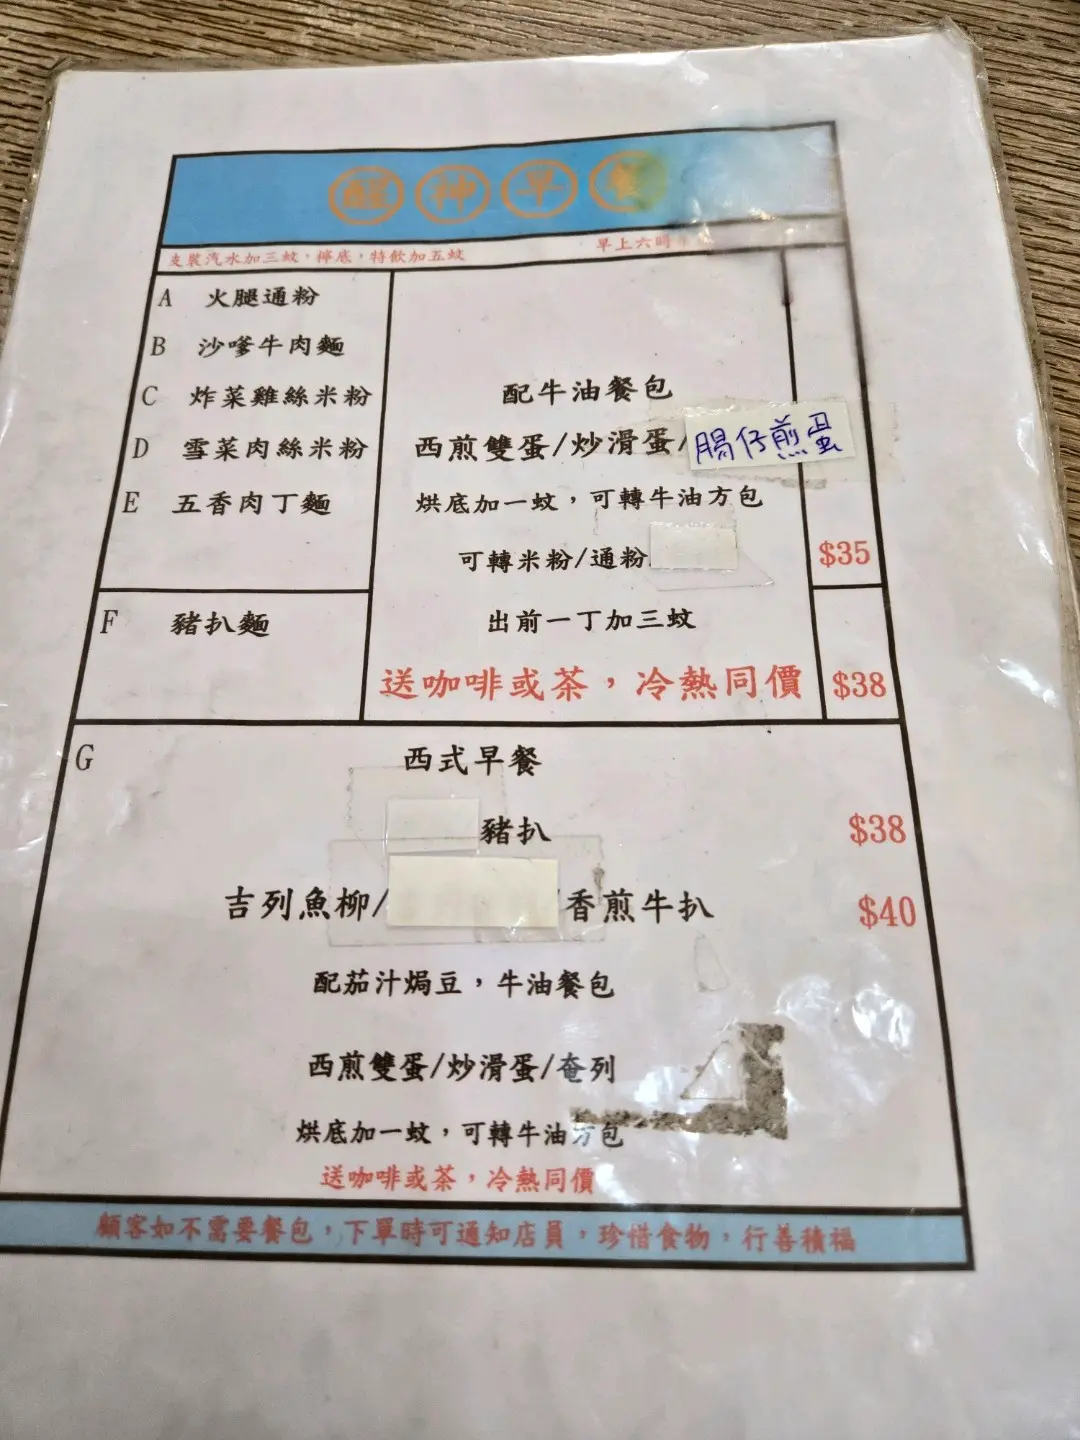 醒神早餐
支裝汽水加三蚊，檸底，特飲加五蚊
早上六時
A 火腿通粉
B 沙嗲牛肉麵
C 炸菜雞絲米粉
D 雪菜肉絲米粉
E 五香肉丁麵
配牛油餐包
西煎雙蛋/炒滑蛋/腸仔煎蛋
烘底加一蚊，可轉牛油方包
可轉米粉/通粉
$35
F 豬扒麵
出前一丁加三蚊
送咖啡或茶，冷熱同價
$38
G 西式早餐
豬扒 $38
吉列魚柳/ /香煎牛扒 $40
配茄汁焗豆，牛油餐包
西煎雙蛋/炒滑蛋/奄列
烘底加一蚊，可轉牛油方包
送咖啡或茶，冷熱同價
顧客如不需要餐包，下單時可通知店員，珍惜食物，行善積福